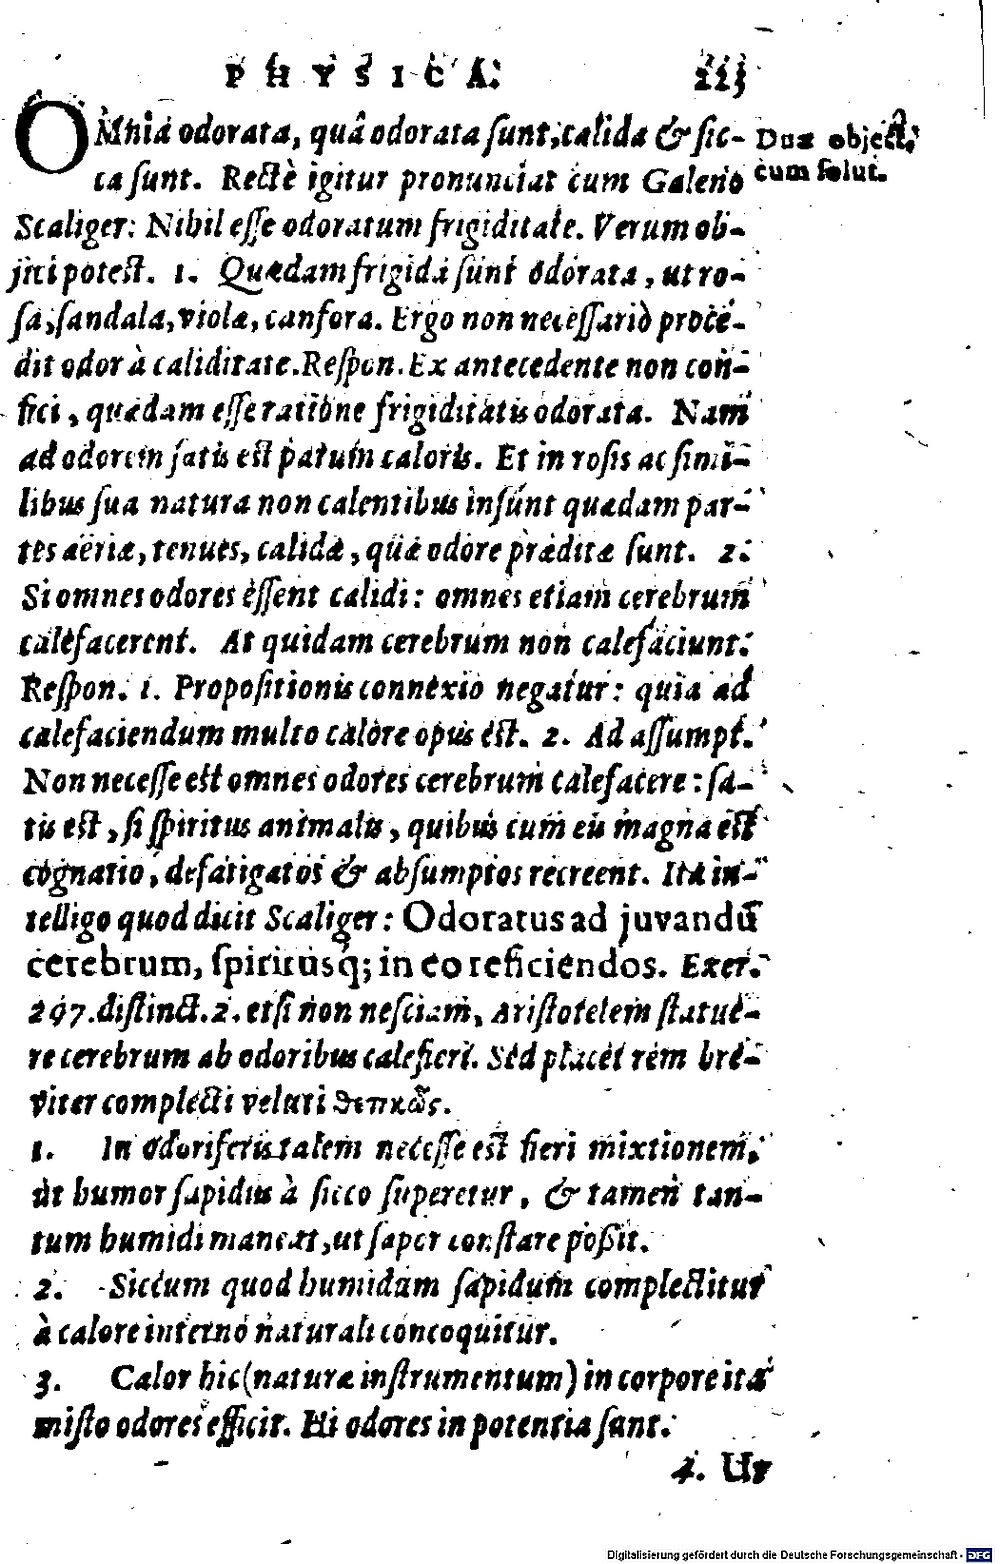 PHYSICA. 223
OMnia odorata, quâ odorata sunt, calida & sic-
ca sunt. Rectè igitur pronunciat cum Galeno
Scaliger: Nihil esse odoratum frigiditate. Verum ob-
jici potest. 1. Quædam frigida sunt odorata, ut ro-
sa, sandala, viola, canfora. Ergo non necessariò proce-
dit odor à caliditate. Respon. Ex antecedente non con-
fici, quædam esse ratione frigiditatis odorata. Nam
ad odorem satis est parum caloris. Et in rosis ac simi-
libus sua natura non calentibus insunt quædam par-
tes aëriæ, tenues, calidæ, quæ odore præditæ sunt. 2.
Si omnes odores essent calidi: omnes etiam cerebrum
calefacerent. At quidam cerebrum non calefaciunt.
Respon. 1. Propositionis connexio negatur: quia ad
calefaciendum multo calore opus est. 2. Ad assumpt.
Non necesse est omnes odores cerebrum calefacere: sa-
tis est, si spiritus animalis, quibus cum eis magna est
cognatio, defatigatos & absumptos recreent. Ita in-
telligo quod dicit Scaliger: Odoratus ad juvandū
cerebrum, spiritusq; in eo reficiendos. Exer.
297. distinct. 2. etsi non nesciam, Aristotelem statue-
re cerebrum ab odoribus calefieri. Sed placet rem bre-
viter complecti veluti θετικῶς.
1. In odoriferis talem necesse est fieri mixtionem,
ut humor sapidus à sicco superetur, & tamen tan-
tum humidi maneat, ut sapor constare possit.
2. Siccum quod humidum sapidum complectitur
à calore interno naturali concoquitur.
3. Calor hic (naturæ instrumentum) in corpore ita
misto odores efficit. Hi odores in potentia sunt.
4. Ut
Duæ object.
cum solut.
Digitalisierung gefördert durch die Deutsche Forschungsgemeinschaft - DFG